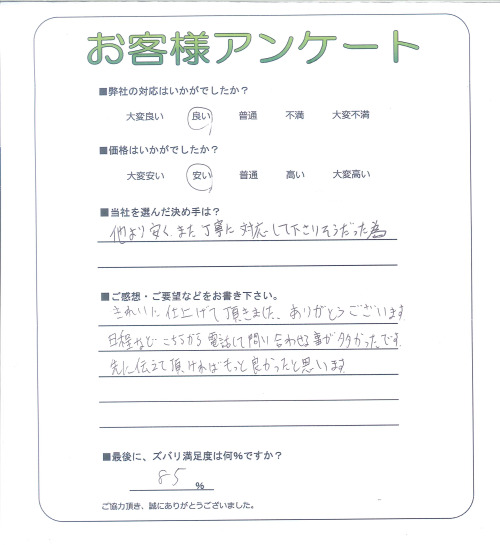 お客様アンケート
■弊社の対応はいかがでしたか？
大変良い 良い 普通 不満 大変不満
■価格はいかがでしたか？
大変安い 安い 普通 高い 大変高い
■当社を選んだ決め手は？
他より安く、また丁寧に対応して下さりそうだった為
■ご感想・ご要望などをお書き下さい。
きれいに仕上げて頂きました。ありがとうございます
日程など こちらから電話して問い合わせる事が多かったです。
先に伝えて頂ければもっと良かったと思います。
■最後に、ズバリ満足度は何%ですか？
85 %
ご協力頂き、誠にありがとうございました。